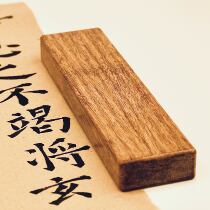 心之不竭将玄